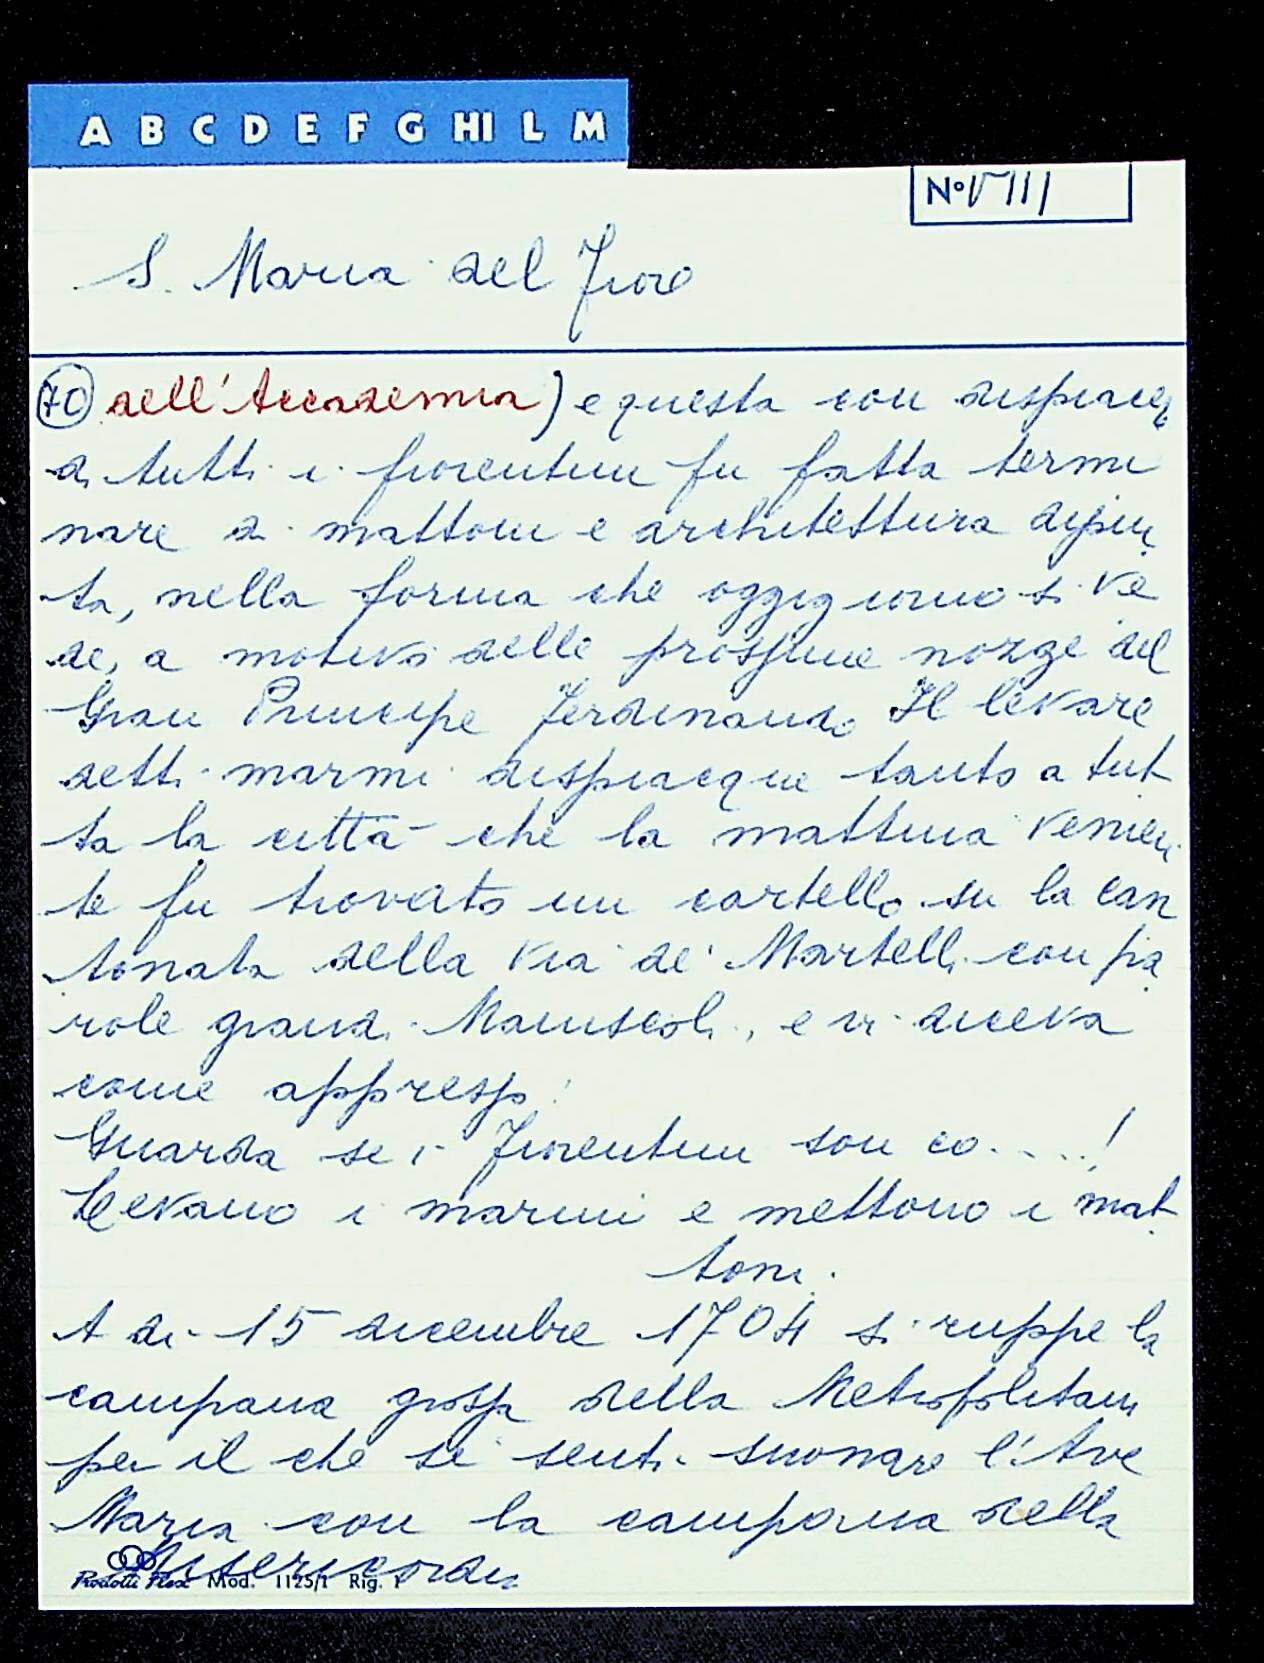 A B C D E F G HI L M
N° VIII
S. Maria del Fiore
70 dell'Accademia) e questa con dispiace
di tutti i fiorentini fu fatta termi
nare di mattoni e architettura dipin
ta, nella forma che oggigiorno si ve
de, a motivo delle prossime nozze del
Gran Principe Ferdinando Il levare
detti marmi dispiacque tanto a tut
ta la città che la mattina venien
te fu trovato un cartello su la can
tonata della via de' Martelli con pa
role grandi Maiuscole, e vi diceva
come appresso:
Guarda se i Fiorentini son co....!
Levano i marmi e mettono i mat
toni.
A di 15 dicembre 1704 si ruppe la
campana grossa della Metropolitana
per il che si sentì suonare l'Ave
Maria con la campana della
Misericordia
Prodotti Flex Mod. 1125/1 Rig. 1